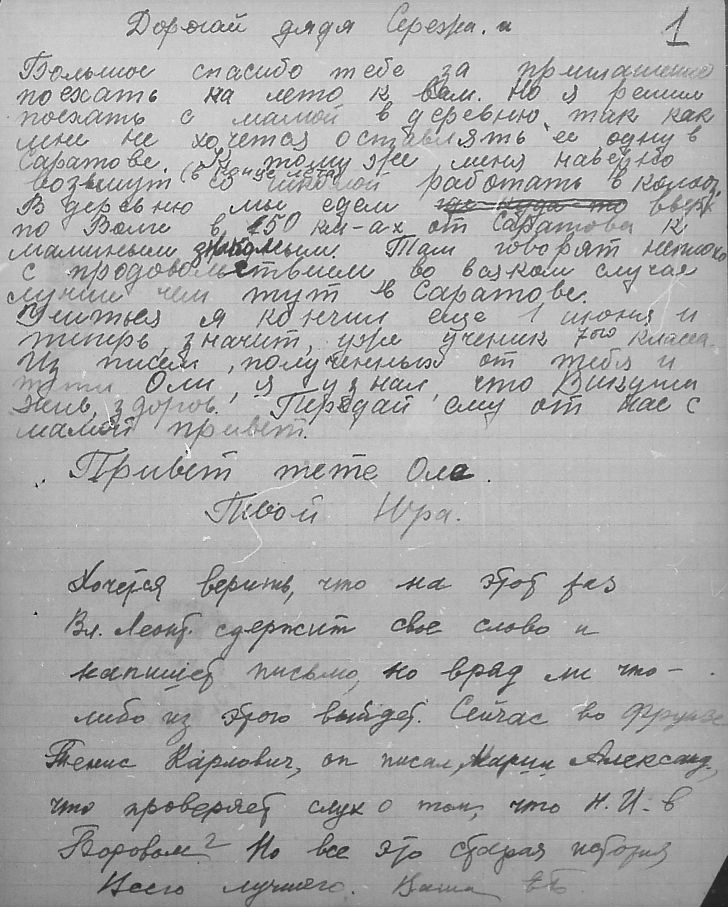 Дорогой дядя Сережа.
1
Большое спасибо тебе за приглашение
поехать на лето к Вам. Но я решил
поехать с мамой в деревню так как
мне не хочется оставлять ее одну в
Саратове. К тому же меня наверно
(в конце лета)
возьмут со школой работать в колхоз.
В деревню мы едем где куда то вверх
по Волге в 150 км-ах от Саратова к
маминым знакомым. Там говорят неплохо
с продовольствием во всяком случае
лучше чем тут в Саратове.
Учиться я кончил еще 1 июня и
теперь, значит, уже ученик 7ого класса.
Из писем, полученных от тебя и
тети Оли, я узнал, что Викуша
жив, здоров. Передай ему от нас с
мамой привет.
Привет тете Оле.
Твой Юра.
Хочется верить, что на этот раз
Вл. Леонт. сдержит свое слово и
напишет письмо, но вряд ли что-
либо из этого выйдет. Сейчас во Фрунзе
Тенис Карлович, он писал Марии Александ.,
что проверяет слух о том, что Н.И. в
Боровом? Но все это старая история
Всего лучшего. Ваша